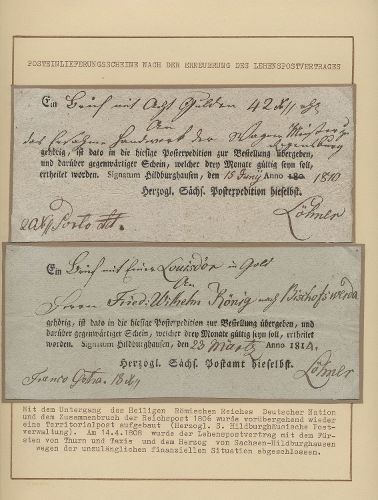 POSTEINLIEFERUNGSSCHEINE NACH DER ERNEUERUNG DES LEHENSPOSTVERTRAGES
Ein Brief mit Acht Gulden 42
An
das Handwerk der Wagen
Regensburg
gehörig, ist dato in die hiesige Postexpedition zur Bestellung übergeben,
und darüber gegenwärtiger Schein, welcher drey Monate gültig seyn soll,
ertheilet worden. Signatum Hildburghausen, den 15 Junij Anno 180 1810
Herzogl. Sächs. Postexpedition hieselbst.
Porto
Löhner
Ein Brief mit Einer Louisdor in Gold
An
Herrn Fried: Wilhelm König nach Bischofswerda
gehörig, ist dato in die hiesige Postexpedition zur Bestellung übergeben, und
darüber gegenwärtiger Schein, welcher drey Monate gültig seyn soll, ertheilet
worden. Signatum Hildburghausen, den 23 März Anno 1814.
Herzogl. Sächs. Postamt hieselbst.
Franco Gotha
Löhner
Mit dem Untergang des Heiligen Römisches Reiches Deutscher Nation
und dem Zusammenbruch der Reichspost 1806 wurde vorübergehend wieder
eine Territorialpost aufgebaut (Herzogl. S. Hildburghäusische Post-
verwaltung). Am 14.4.1808 wurde der Lehenspostvertrag mit dem Für-
sten von Thurn und Taxis und dem Herzog von Sachsen-Hildburghausen
wegen der unzulänglichen finanziellen Situation abgeschlossen.